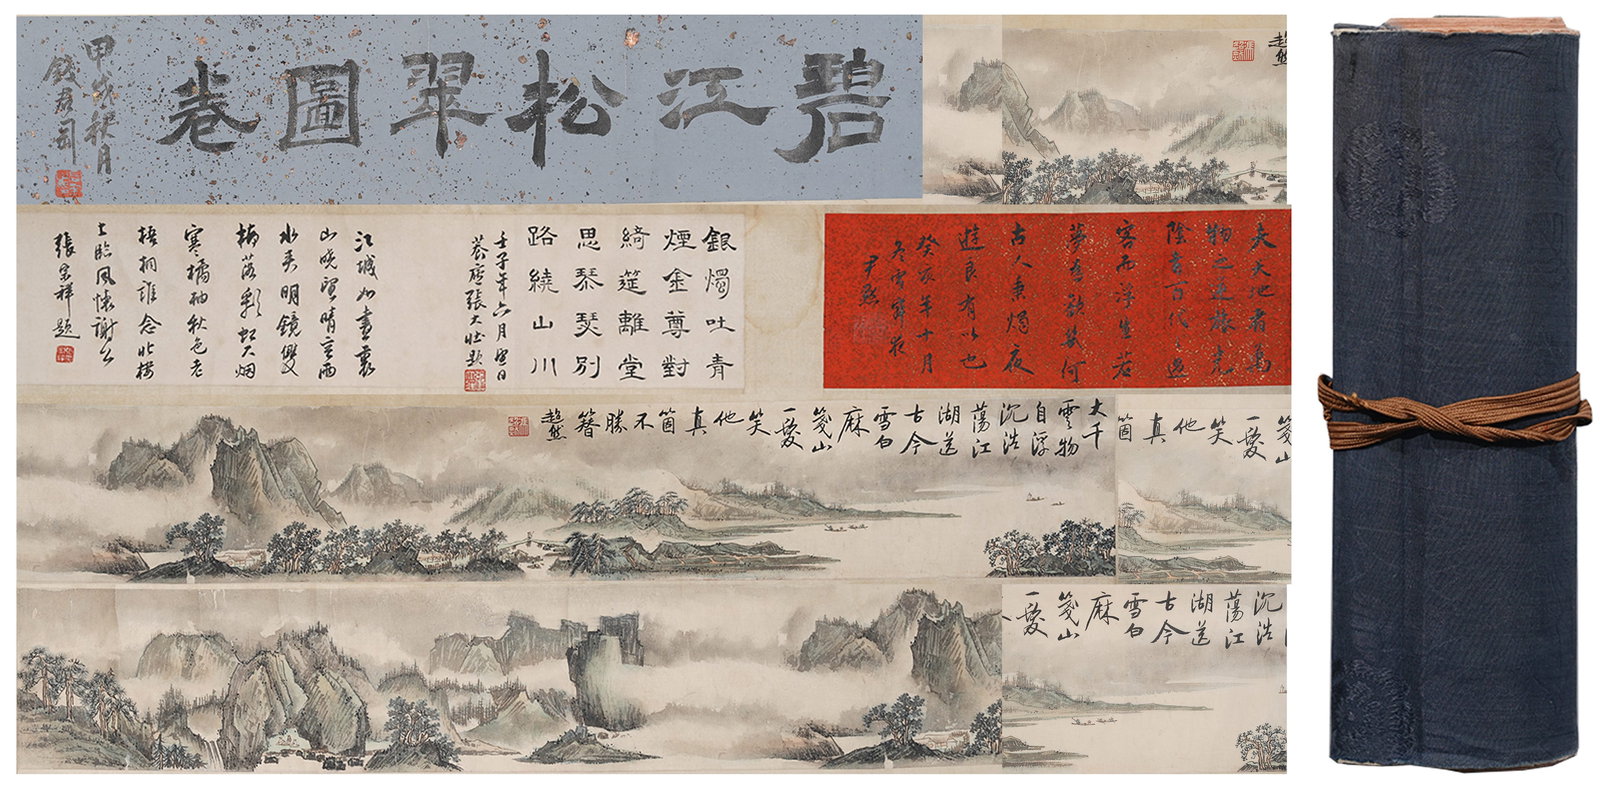 碧江松翠圖卷
甲戌秋月
錢君匋
趙熊
夫天地者萬
物之逆旅光
陰者百代之過
客而浮生若
夢為歡幾何
古人秉燭夜
遊良有以也
癸亥年十月
尹默
銀燭吐青
煙金尊對
綺筵離堂
思琴瑟別
路繞山川
壬子年六月
養廬張大壯題
江城如畫裏
山晚望晴空兩
水夾明鏡雙
橋落彩虹人烟
寒橘柚秋色老
梧桐誰念北樓
上臨風懷謝公
張宗祥題
大千
雲物
自浮
沉浩
蕩江
湖送
古今
雪白
麻
箋山
一髮
笑
他
真
箇
不
勝
簪
趙熊
箋山
一髮
笑
他
真
箇
沉浩
蕩江
湖送
古今
雪白
麻
箋山
一髮